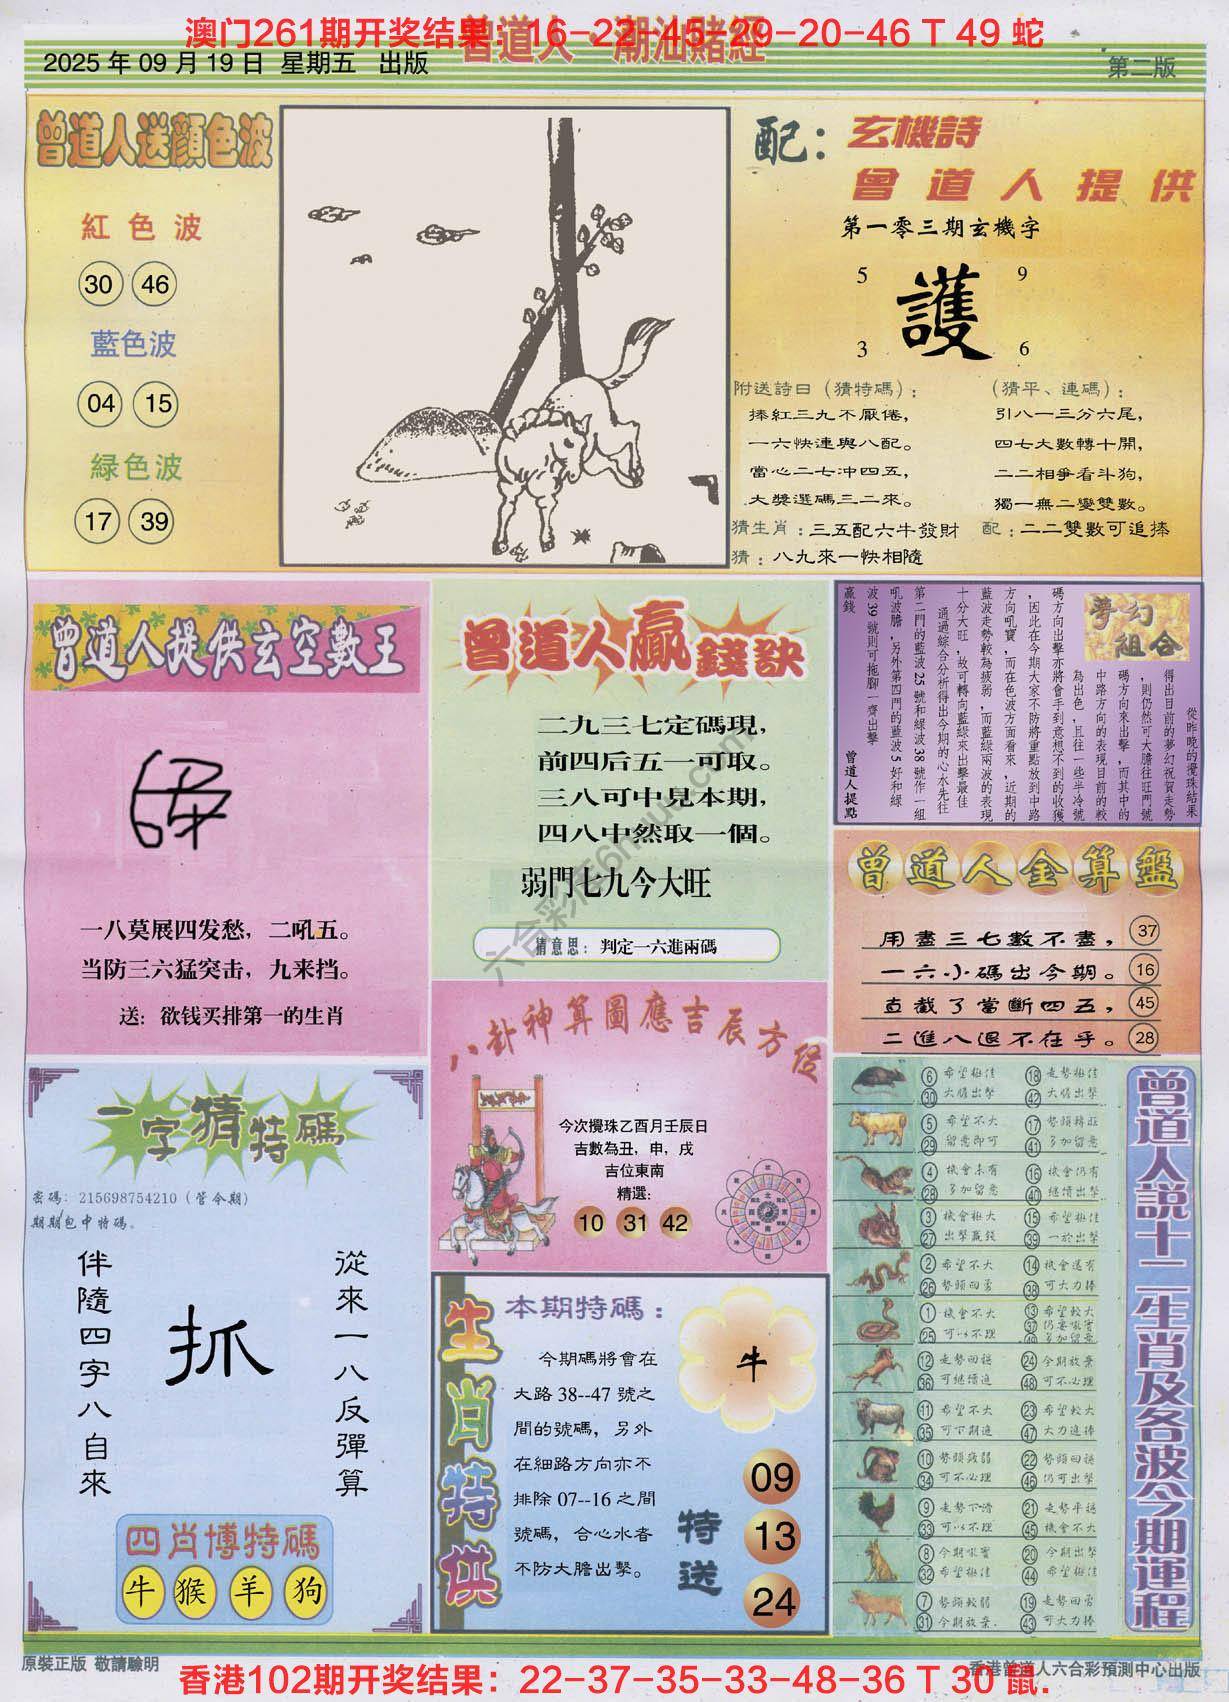 澳门261期开奖结果：16-22-45-29-20-46 T 49 蛇
曾道人·潮汕赌經
2025 年 09 月 19 日 星期五 出版
第二版
曾道人送顔色波
紅色波
30 46
藍色波
04 15
緑色波
17 39
配：玄機詩
曾道人提供
第一零三期玄機字
5 9
護
3 6
附送詩曰（猜特碼）：
捧紅三九不厭倦，
一六快連與八配。
當心二七冲四五，
大獎選碼三二來。
（猜平、連碼）：
引八一三分六尾，
四七大數轉十開，
二二相爭看斗狗，
獨一無二變雙數。
猜生肖：三五配六牛發財
配：二二雙數可追捧
猜：八九來一快相隨
曾道人提供玄空數王
一八莫展四发愁，二吼五。
当防三六猛突击，九来挡。
送：欲钱买排第一的生肖
曾道人贏錢訣
二九三七定碼現，
前四后五一可取。
三八可中見本期，
四八中然取一個。
弱門七九今大旺
猜意思：判定一六進兩碼
夢幻組合
從昨晚的攪珠結果
得出目前的夢幻祝賀走勢
，則仍然可大膽往旺門號
碼方向來出擊，而其中的
中路方向的表現目前的較
為出色，且往一些半冷號
碼方向出擊亦將會手到意想不到的收獲
，因此在今期大家不防將重點放到中路
方向吼寶，而在色波方面看來，近期的
藍波走勢較為疲弱，而藍綠兩波的表現
十分大旺，故可轉向藍綠來出擊最佳
通過綜合分析得出今期的心水先往
第二門的藍波 25 號和綠波 38 號作一組
吼波膽，另外第四門的藍波 5 好和綠
波 39 號則可拖腳一齊出擊
贏錢
曾道人提點
曾道人金算盤
用盡三七數不盡， 37
一六小碼出今期。 16
直截了當斷四五， 45
二進八退不在乎。 28
八卦神算圖應吉辰方位
今次攪珠乙酉月壬辰日
吉數為丑，申，戌
吉位東南
精選：
10 31 42
一字猜特碼
密碼：215698754210（管令期）
期期包中特碼。
從來一八反彈算
抓
伴隨四字八自來
四肖博特碼
牛 猴 羊 狗
生肖特供
本期特碼：
今期碼將會在
大路 38--47 號之
間的號碼，另外
在細路方向亦不
排除 07--16 之間
號碼，合心水者
不防大膽出擊。
牛
特送
09
13
24
曾道人説十二生肖及各波今期運程
6 希望極佳 18 走勢極佳
30 大膽出擊 42 大膽出擊
5 希望不大 17 勢頭轉旺
29 留意即可 41 多加留意
4 機會未有 16 機會仍有
28 多加留意 40 継續出擊
3 機會極大 15 希望極佳
27 出擊贏錢 39 一於出擊
2 希望不大 14 機會還有
26 勢頭回勇 38 可大力捧
1 機會不大 13 希望較大
25 可以不理
12 走勢回穩 24 今期放棄
36 可継續追 48 可不必理
11 希望不大 23 希望較大
35 可下期追 47 大力追捧
10 勢頭疲弱 22 勢頭回穩
34 可不必理 46 仍可出擊
9 走勢下滑 21 走勢平穩
33 可以不理 45 機會不大
8 今期吼寶 20 今期出擊
32 希望極佳 44 希望極佳
7 勢頭較弱 19 走勢回勇
31 今期放棄 43 可大力捧
原裝正版 敬請驗明
香港曾道人六合彩預測中心出版
香港102期开奖结果：22-37-35-33-48-36 T 30 鼠.